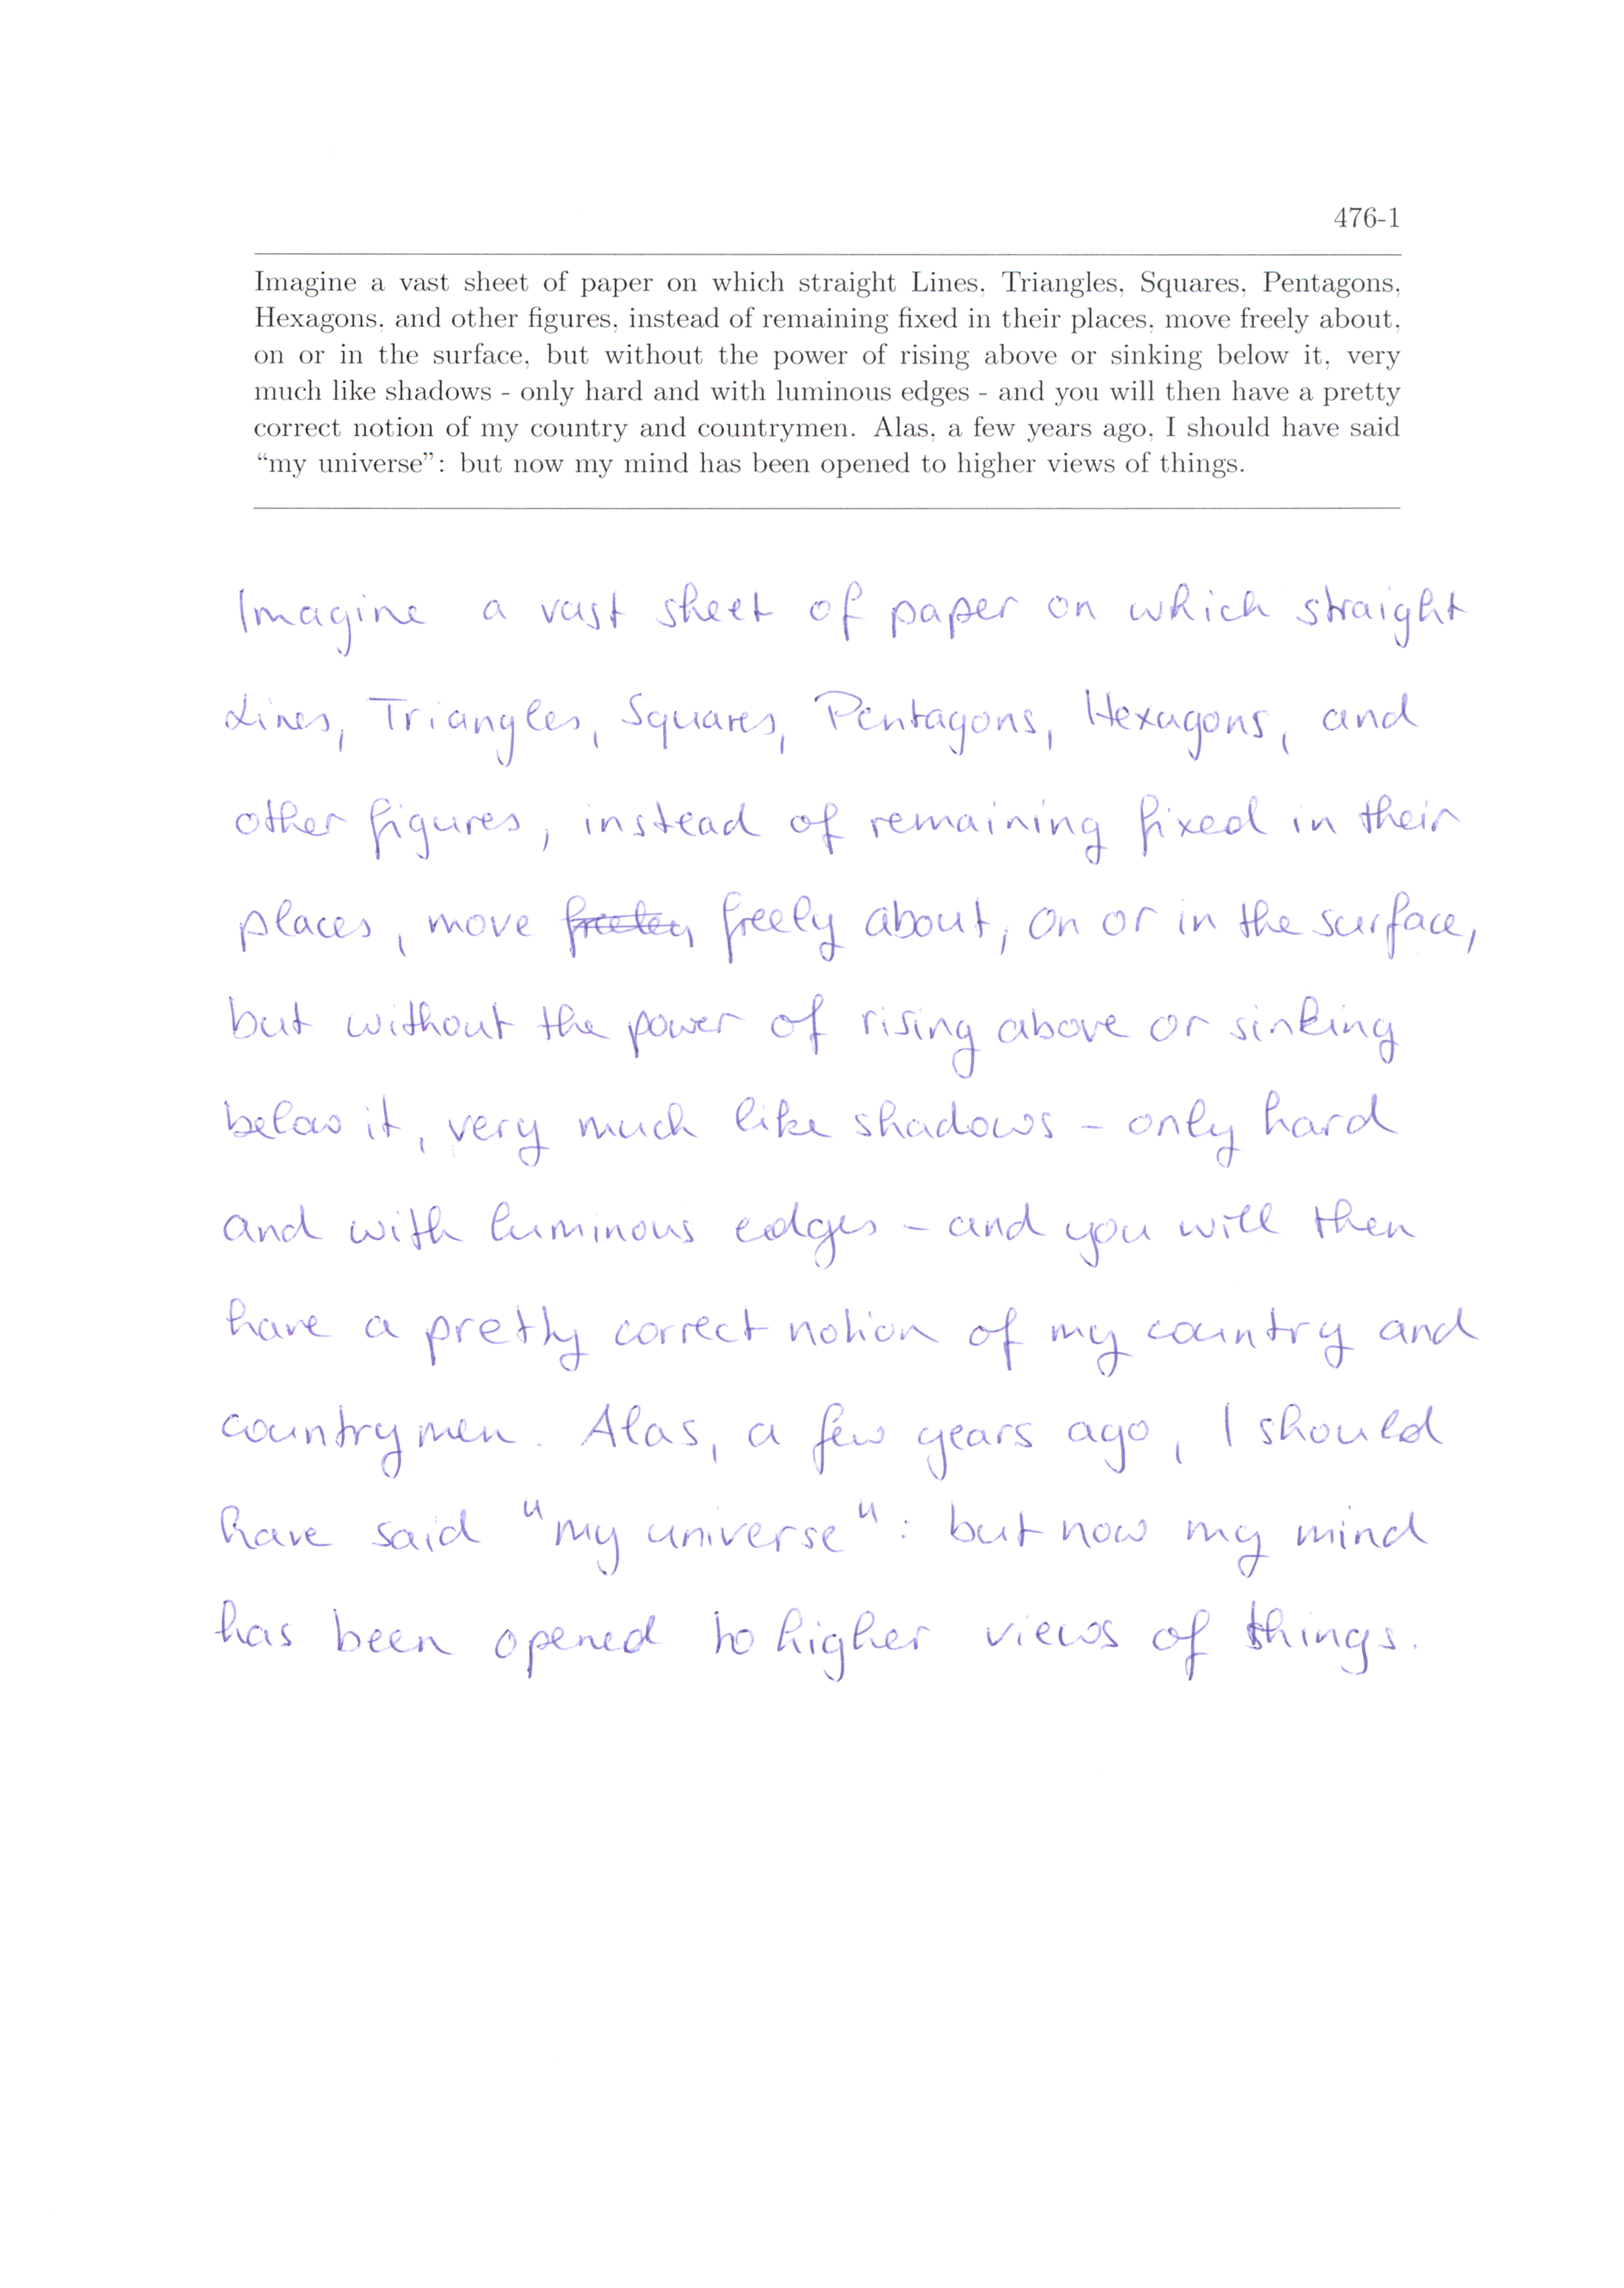 476-1
Imagine a vast sheet of paper on which straight Lines, Triangles, Squares, Pentagons,
Hexagons, and other figures, instead of remaining fixed in their places, move freely about,
on or in the surface, but without the power of rising above or sinking below it, very
much like shadows - only hard and with luminous edges - and you will then have a pretty
correct notion of my country and countrymen. Alas, a few years ago, I should have said
“my universe”: but now my mind has been opened to higher views of things.
Imagine a vast sheet of paper on which straight
Lines, Triangles, Squares, Pentagons, Hexagons, and
other figures, instead of remaining fixed in their
places, move freely about, on or in the surface,
but without the power of rising above or sinking
below it, very much like shadows - only hard
and with luminous edges - and you will then
have a pretty correct notion of my country and
countrymen. Alas, a few years ago, I should
have said "my universe": but now my mind
has been opened to higher views of things.